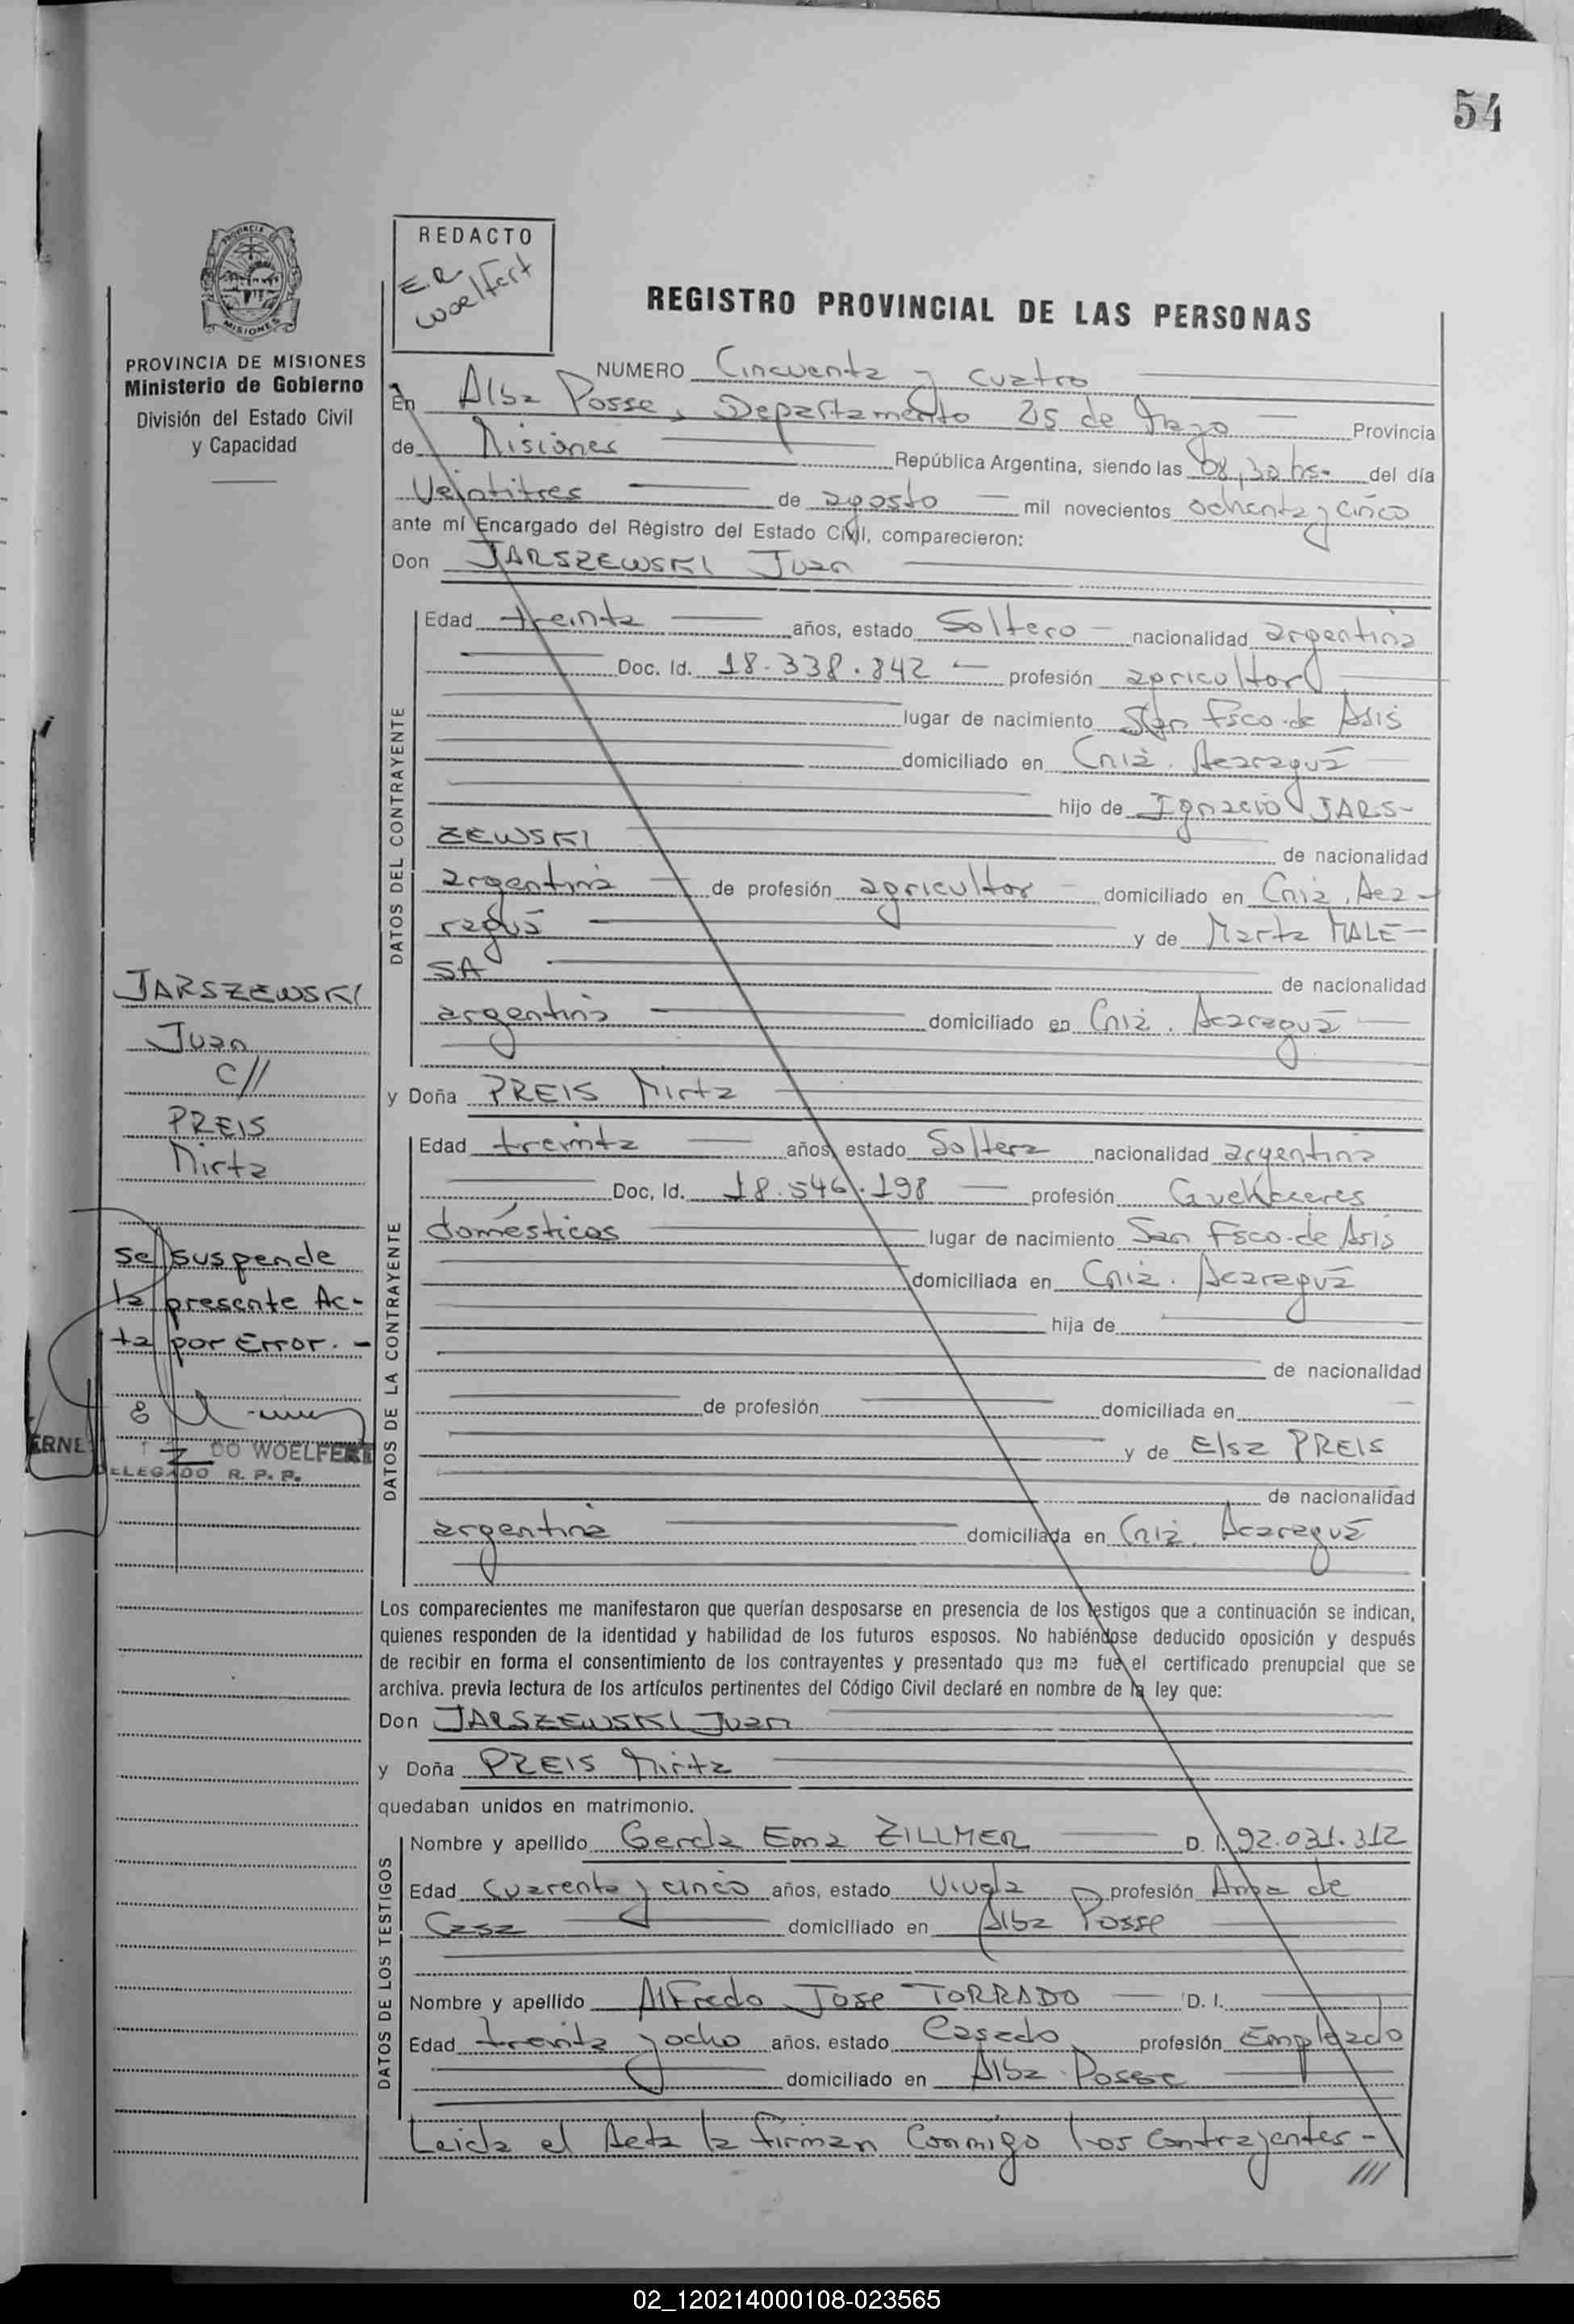 54
PROVINCIA DE MISIONES
Ministerio de Gobierno
División del Estado Civil
y Capacidad
REDACTO
E.R.
Woelfert
REGISTRO PROVINCIAL DE LAS PERSONAS
NUMERO Cincuenta y cuatro
En Alba Posse, Departamento 25 de Mayo Provincia
de Misiones República Argentina, siendo las 08,30 hs. del día
Veintitres de agosto mil novecientos ochenta y cinco
ante mí Encargado del Registro del Estado Civil, comparecieron:
Don JARSZEWSKI Juan
DATOS DEL CONTRAYENTE
Edad treinta años, estado Soltero nacionalidad argentina
Doc. Id. 18.338.842 profesión agricultor
lugar de nacimiento San Fsco. de Asis
domiciliado en Cnia. Acaragua
hijo de Ignacio JARS-
ZEWSKI de nacionalidad
argentina de profesión agricultor domiciliado en Cnia. Aca-
ragua y de Marta MALE-
SA de nacionalidad
argentina domiciliado en Cnia. Acaragua
y Doña PREIS Mirta
DATOS DE LA CONTRAYENTE
Edad treinta años, estado Soltera nacionalidad argentina
Doc, Id. 18.546.198 profesión Quehaceres
domésticos lugar de nacimiento San Fsco. de Asis
domiciliada en Cnia. Acaragua
hija de
de nacionalidad
de profesión domiciliada en
y de Elsa PREIS
de nacionalidad
argentina domiciliada en Cnia. Acaragua
Los comparecientes me manifestaron que querían desposarse en presencia de los testigos que a continuación se indican,
quienes responden de la identidad y habilidad de los futuros esposos. No habiéndose deducido oposición y después
de recibir en forma el consentimiento de los contrayentes y presentado que me fué el certificado prenupcial que se
archiva. previa lectura de los artículos pertinentes del Código Civil declaré en nombre de la ley que:
Don JARSZEWSKI Juan
y Doña PREIS Mirta
quedaban unidos en matrimonio.
DATOS DE LOS TESTIGOS
Nombre y apellido Gerda Ema ZILLMER D. I. 92.031.312
Edad Cuarenta y cinco años, estado Viuda profesión Ama de
Casa domiciliado en Alba Posse
Nombre y apellido Alfredo Jose TORRADO D. I.
Edad treinta y ocho años. estado Casado profesión Empleado
domiciliado en Alba Posse
Leida el Acta la firman Conmigo los Contrayentes -
///
JARSZEWSKI
Juan
C//
PREIS
Mirta
Se suspende
la presente Ac-
ta por Error. -
DO WOELFERT
DELEGADO R. P. P.
02_120214000108-023565